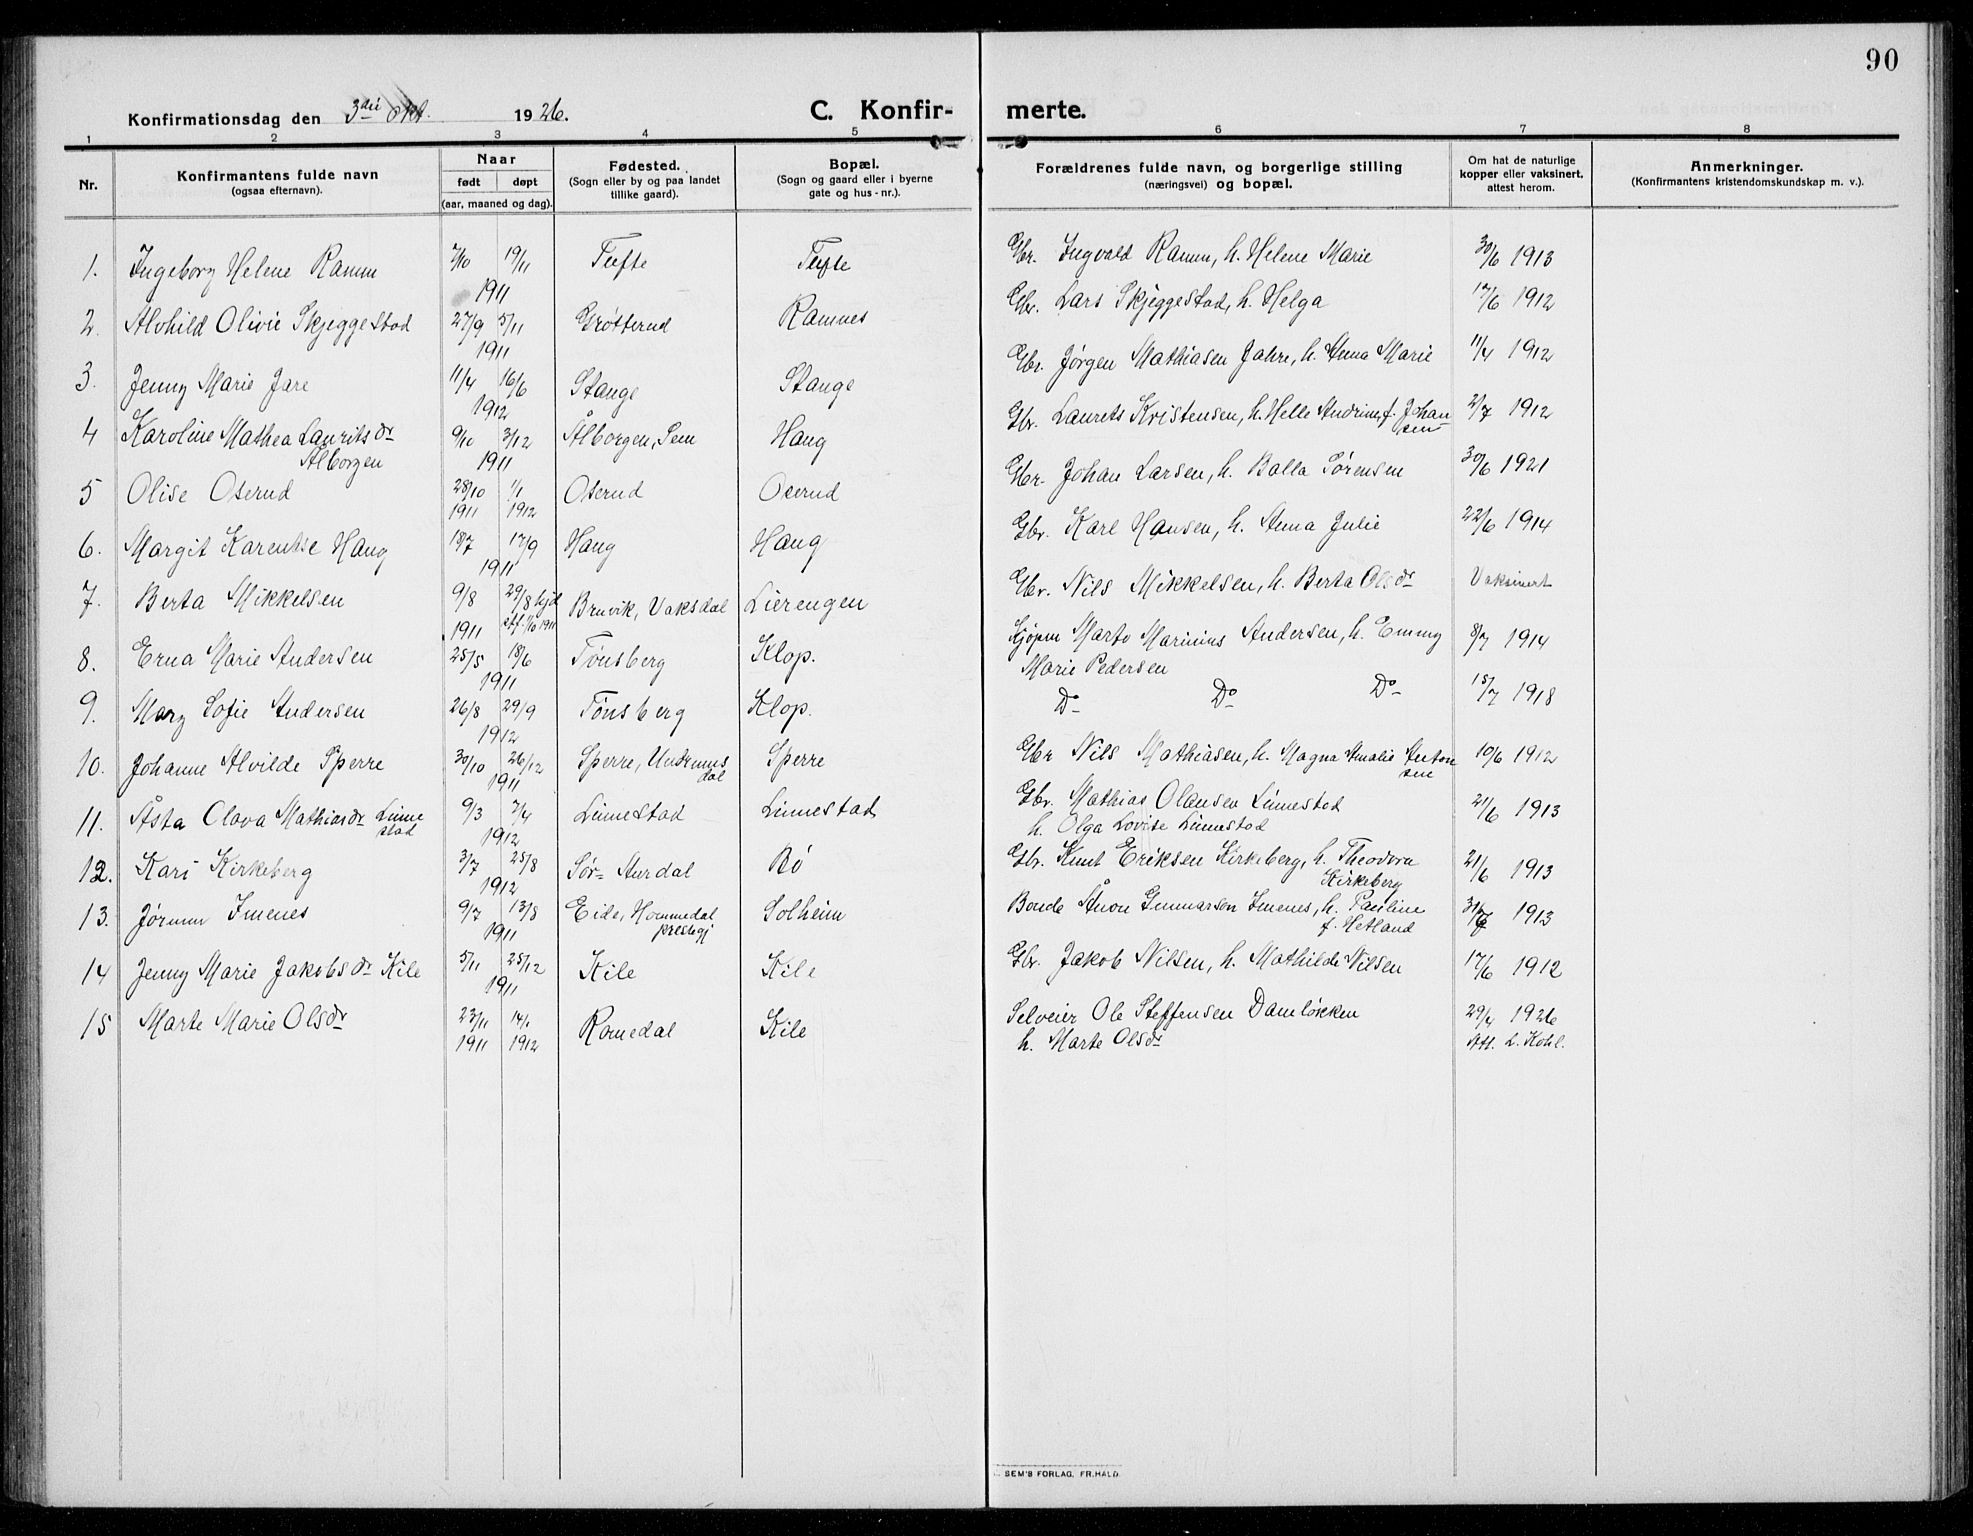 90
Konfirmationsdag den 3die Okt. 1926. C. Konfirmerte.
1 2 3 4 5 6 7 8
Nr. Konfirmantens fulde navn (ogsaa efternavn). Naar født døpt (aar, maaned og dag). Fødested. (Sogn eller by og paa landet tillike gaard). Bopæl. (Sogn og gaard eller i byerne gate og hus-nr.). Forældrenes fulde navn, og borgerlige stilling (næringsvei) og bopæl. Om hat de naturlige kopper eller vaksinert, attest herom. Anmerkninger. (Konfirmantens kristendomskundskap m. v.).
1. Ingeborg Helene Ramm 7/10 19/11 1911 Tufte Tufte Gbr. Ingvald Ramm, h. Helene Marie 30/6 1913
2. Alvhild Olivie Skjeggestad 27/9 5/11 1911 Grøtterud Ramnes Gbr. Lars Skjeggestad, h. Helga 17/6 1912
3. Jenny Marie Jare 11/4 16/6 1912 Stange Stange Gbr. Jørgen Mathiasen Jahre, h. Anna Marie 11/4 1912
4 Karoline Mathea Lauritsdr Ålborgen 9/10 3/12 1911 Ålborgen, Sem Haug Gbr. Laurets Kristensen, h. Helle Andrine f. Johansen 2/7 1912
5 Olise Oserud 28/10 1911 1/1 1912 Oserud Oserud Gbr. Johan Larsen, h. Balla Sørensen 30/6 1921
6. Margit Karentse Haug 18/7 17/9 1911 Haug Haug Gbr. Karl Hansen, h. Anna Julie 22/6 1914
7. Berta Mikkelsen 9/8 1911 29/8 hjd stf. 1/10 1911 Bruvik, Vaksdal Lierengen Gbr. Nils Mikkelsen, h. Berta Olsdr Vaksinert
8. Erna Marie Andersen 25/5 18/6 1911 Tønsberg Klop. Kjøpm Marto Marinius Andersen, h. Emmy Marie Pedersen 8/7 1914
9. Mary Sofie Andersen 26/8 29/9 1912 Tønsberg Klop. Do Do Do 15/7 1918
10. Johanne Alvilde Sperre 30/10 26/12 1911 Sperre, Undrumsdal Sperre Gbr Nils Mathiasen, h. Magna Amalie Antonsen 10/6 1912
11. Åsta Olava Mathiasdr Linnestad 9/3 7/4 1912 Linnestad Linnestad Gbr. Mathias Olausen Linnestad
h. Olga Lovise Linnestad 21/6 1913
12. Kari Kirkeberg 3/7 25/8 1912 Sør-Aurdal Bø Gbr. Knut Eriksen Kirkeberg, h. Theodora Kirkeberg 21/6 1913
13. Jørunn Imenes 9/7 13/8 1911 Eide, Hommedal prestegj Solheim Bonde Anon Gunnarson Imenes, h. Pauline f. Hetland 1913
14 Jenny Marie Jakobsdr Kile 5/11 25/12 1911 Kile Kile Gbr. Jakob Nilsen, h. Mathilde Nilsen 17/6 1912
15 Marte Marie Olsdr 23/11 1911 14/1 1912 Romedal Kile Selveier Ole Steffensen Damløkken
h. Marte Olsdr 29/4 1926
Att. L. Kohl.
SEM'S FORLAG, FR.HALD.